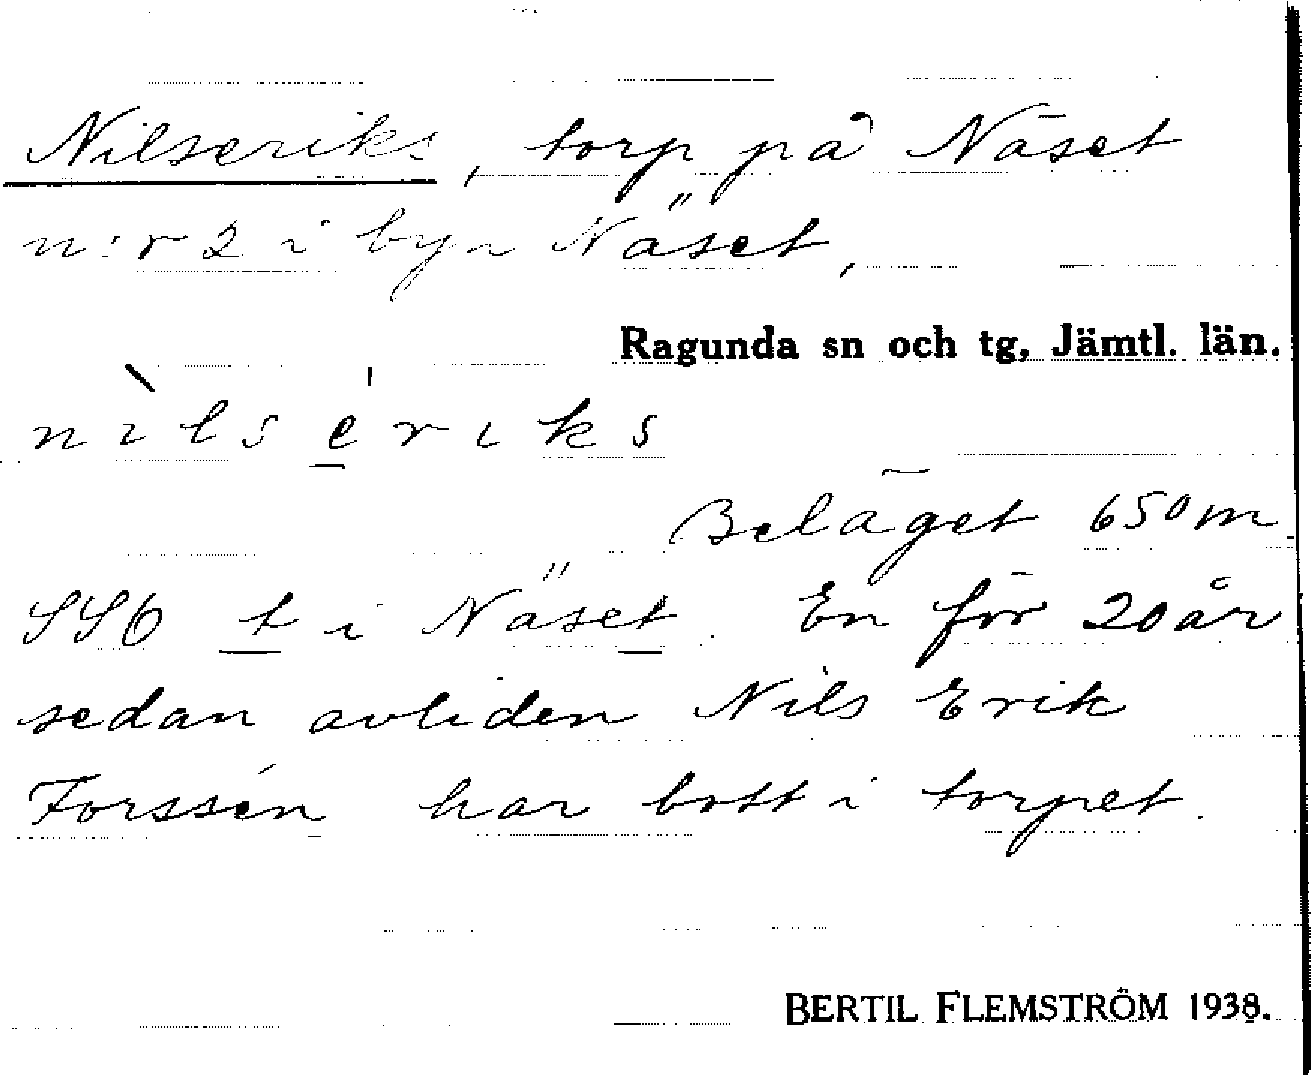 Nilseriks, torp på Näset
n:r 2 i byn Näset,
Ragunda sn och tg, Jämtl. län.
nìlsériks
Beläget 650 m
SSÖ t i Näset. En för 20 år
sedan avliden Nils Erik
Forssén har bott i torpet.
BERTIL FLEMSTRÖM 1938.